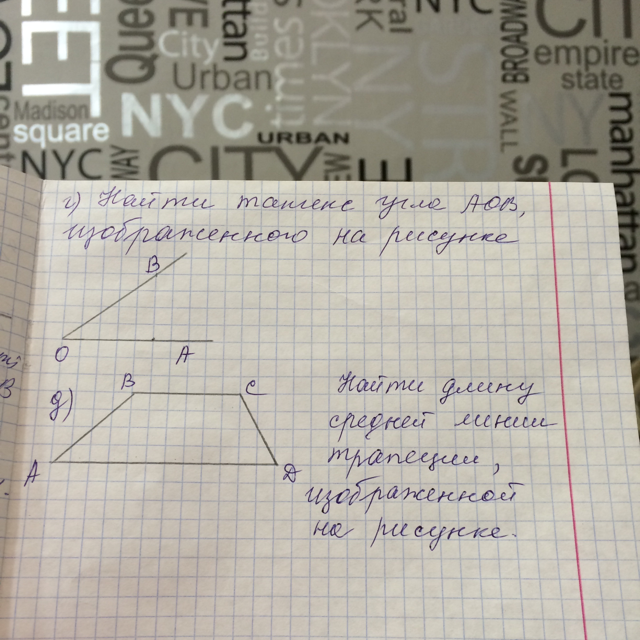 Queen
City
Urban
Manhattan
times
BROADWAY
WALL
CITY
empire
state
NYC
Madison
square
NYC
NYC
URBAN
CITY
manhattan
г) Найти тангенс угла AOB,
изображенного на рисунке
B
O
A
д)
B
C
A
D
Найти длину
средней линии
трапеции,
изображенной
на рисунке.